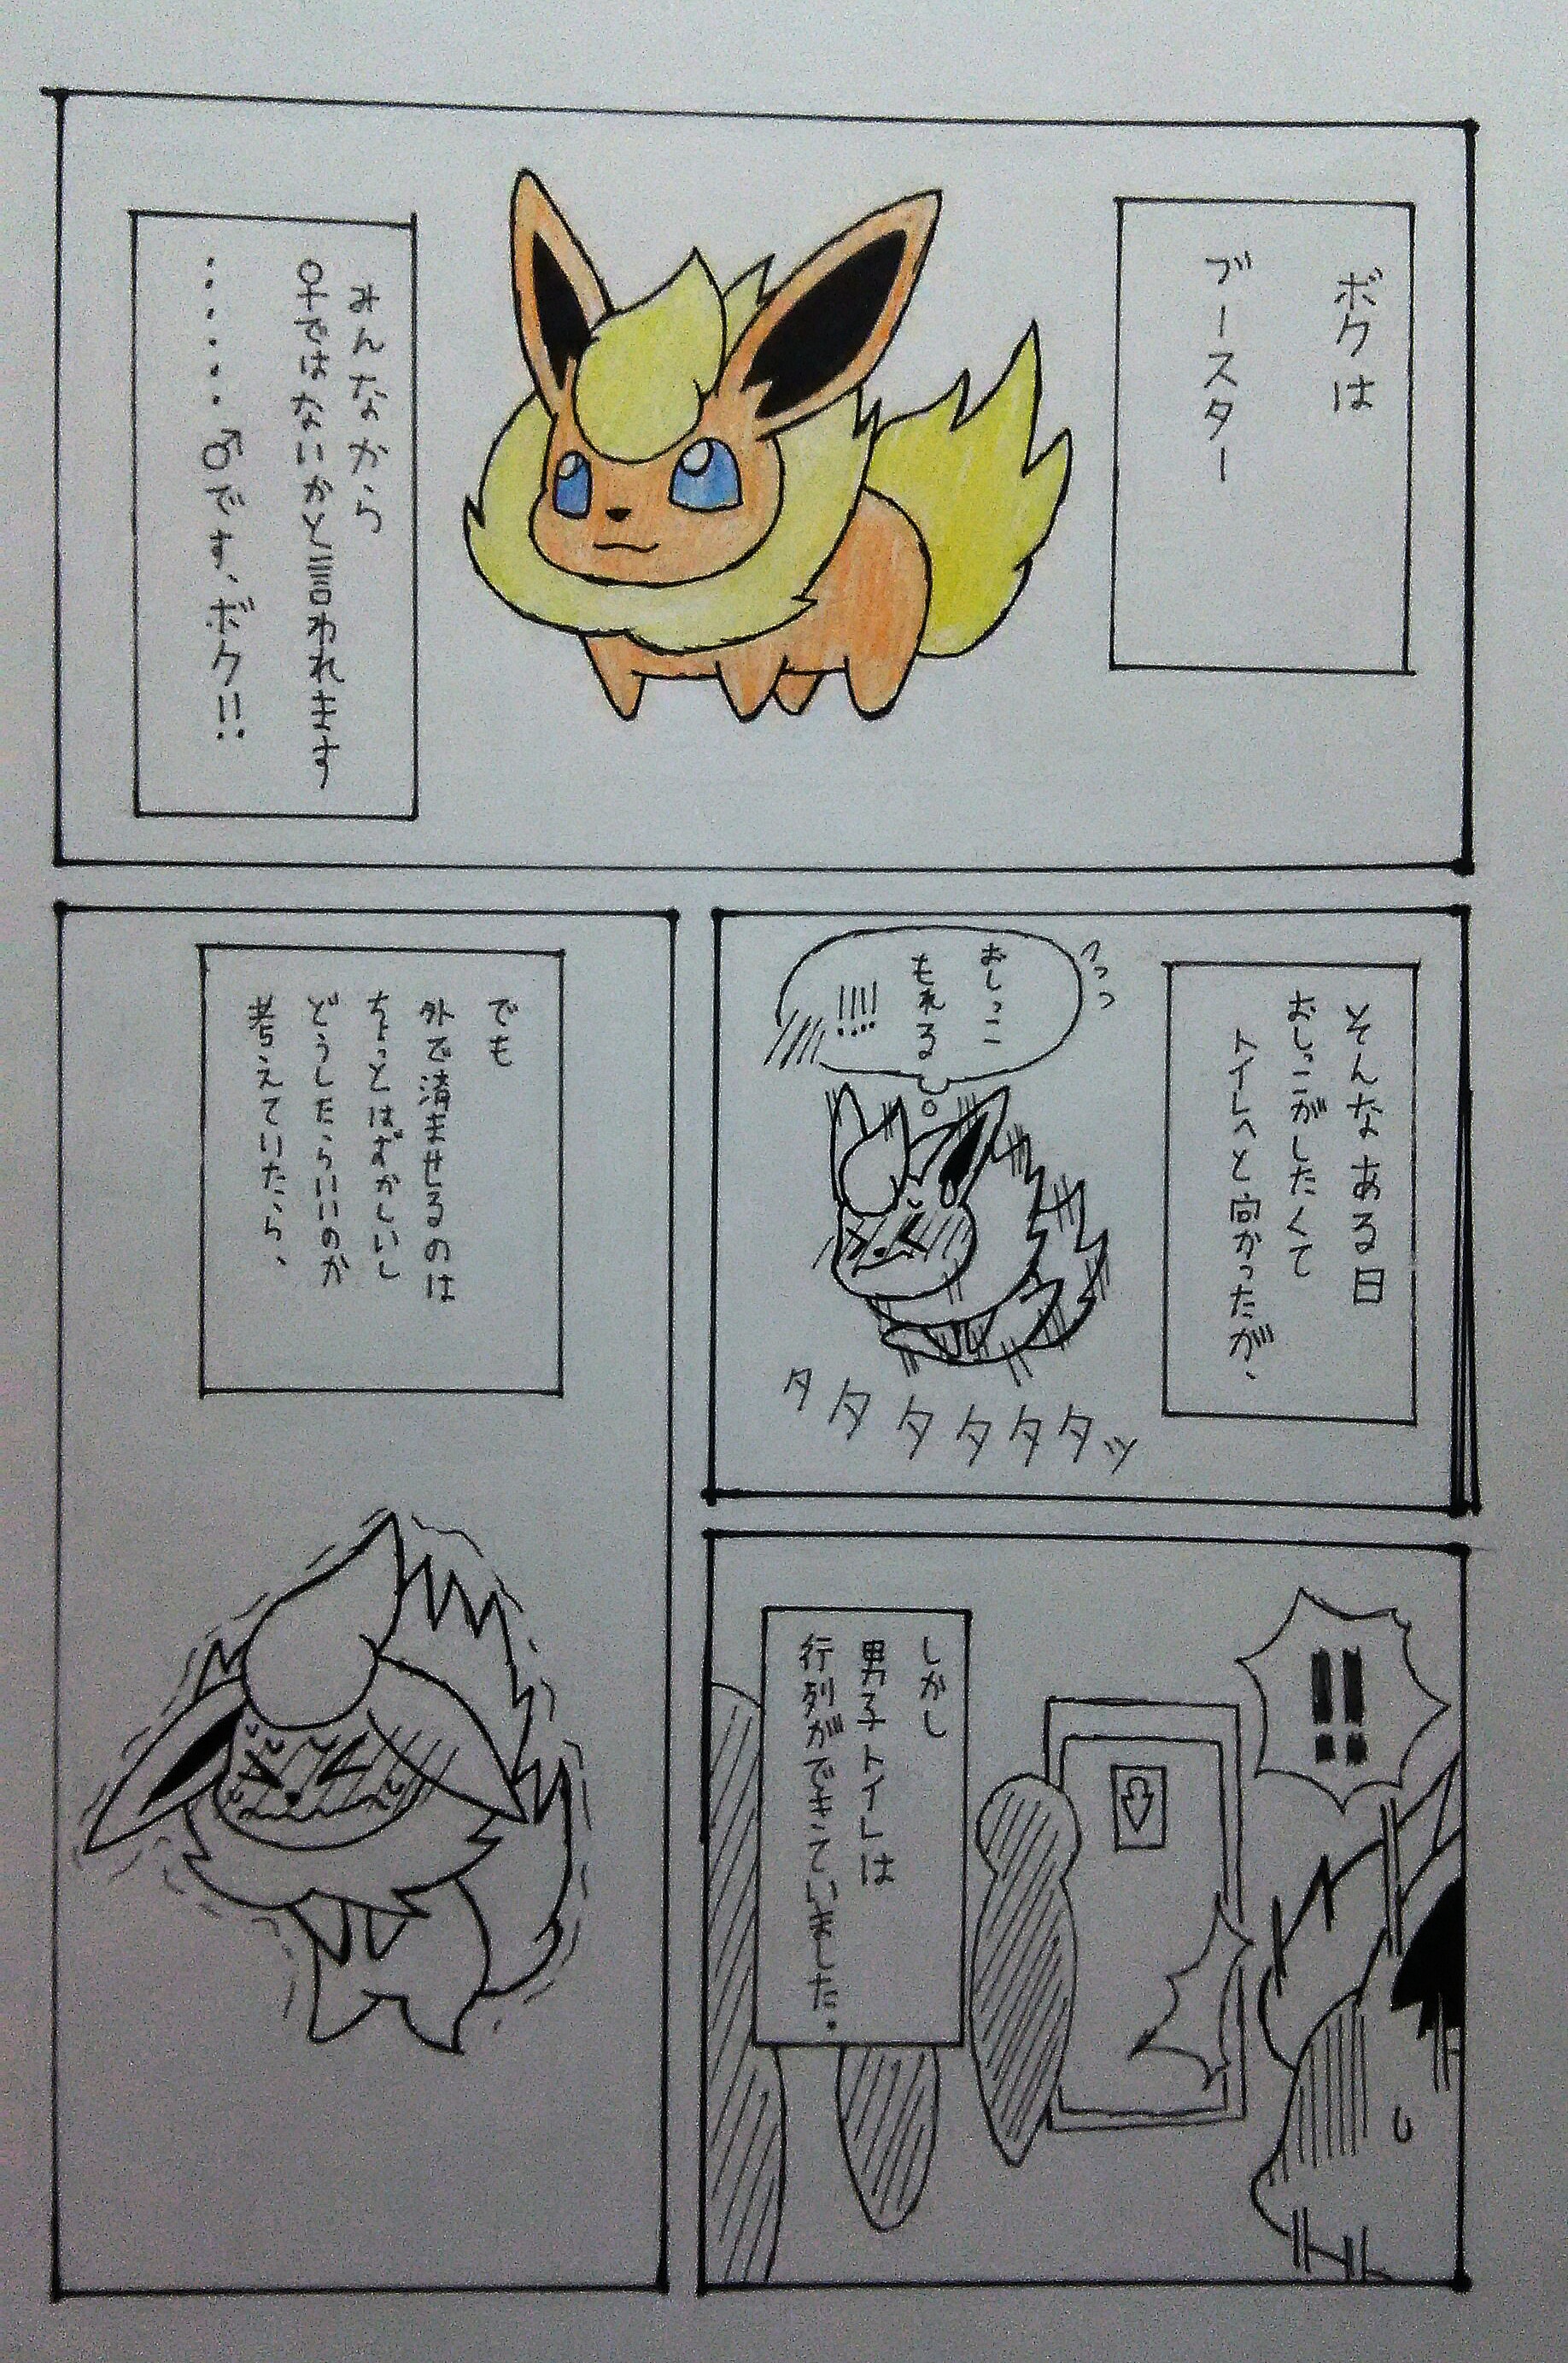 ボクは
ブースター
みんなから
♀ではないかと言われます
・・・・・♂です、ボク!!
そんなある日
おしっこがしたくて
トイレへと向かったが、
おしっこ
もれる
!!!!
タタタタタタッ
!!
しかし
男子トイレは
行列ができていました.
でも
外で済ませるのは
ちょっとはずかしいし
どうしたらいいのか
考えていたら、